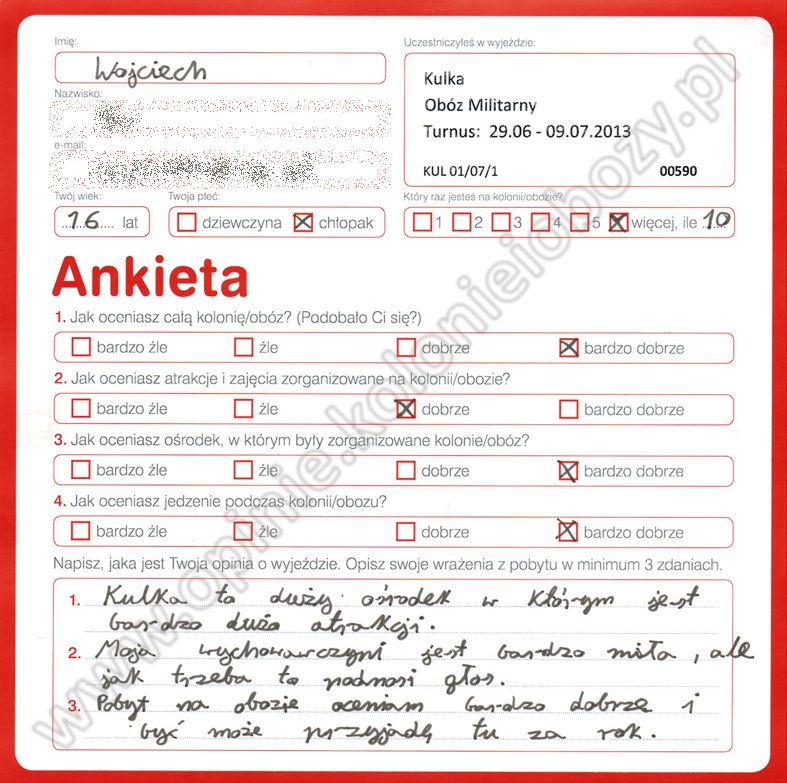 Imię:
Wojciech
Nazwisko:
e-mail:
Uczestniczyłeś w wyjeździe:
Kulka
Obóz Militarny
Turnus: 29.06 - 09.07.2013
KUL 01/07/1 00590
Twój wiek:
16 lat
Twoja płeć:
dziewczyna chłopak
Który raz jesteś na kolonii/obozie?
1 2 3 4 5 więcej, ile 10
Ankieta
1. Jak oceniasz całą kolonię/obóz? (Podobało Ci się?)
bardzo źle źle dobrze bardzo dobrze
2. Jak oceniasz atrakcje i zajęcia zorganizowane na kolonii/obozie?
bardzo źle źle dobrze bardzo dobrze
3. Jak oceniasz ośrodek, w którym były zorganizowane kolonie/obóz?
bardzo źle źle dobrze bardzo dobrze
4. Jak oceniasz jedzenie podczas kolonii/obozu?
bardzo źle źle dobrze bardzo dobrze
Napisz, jaka jest Twoja opinia o wyjeździe. Opisz swoje wrażenia z pobytu w minimum 3 zdaniach.
1. Kulka to duży ośrodek w którym jest
bardzo dużo atrakcji.
2. Moja wychowawczyni jest bardzo miła, ale
jak trzeba to podnosi głos.
3. Pobyt na obozie oceniam bardzo dobrze i
być może przyjadę tu za rok.
www.opinie.kolonieiobozy.pl